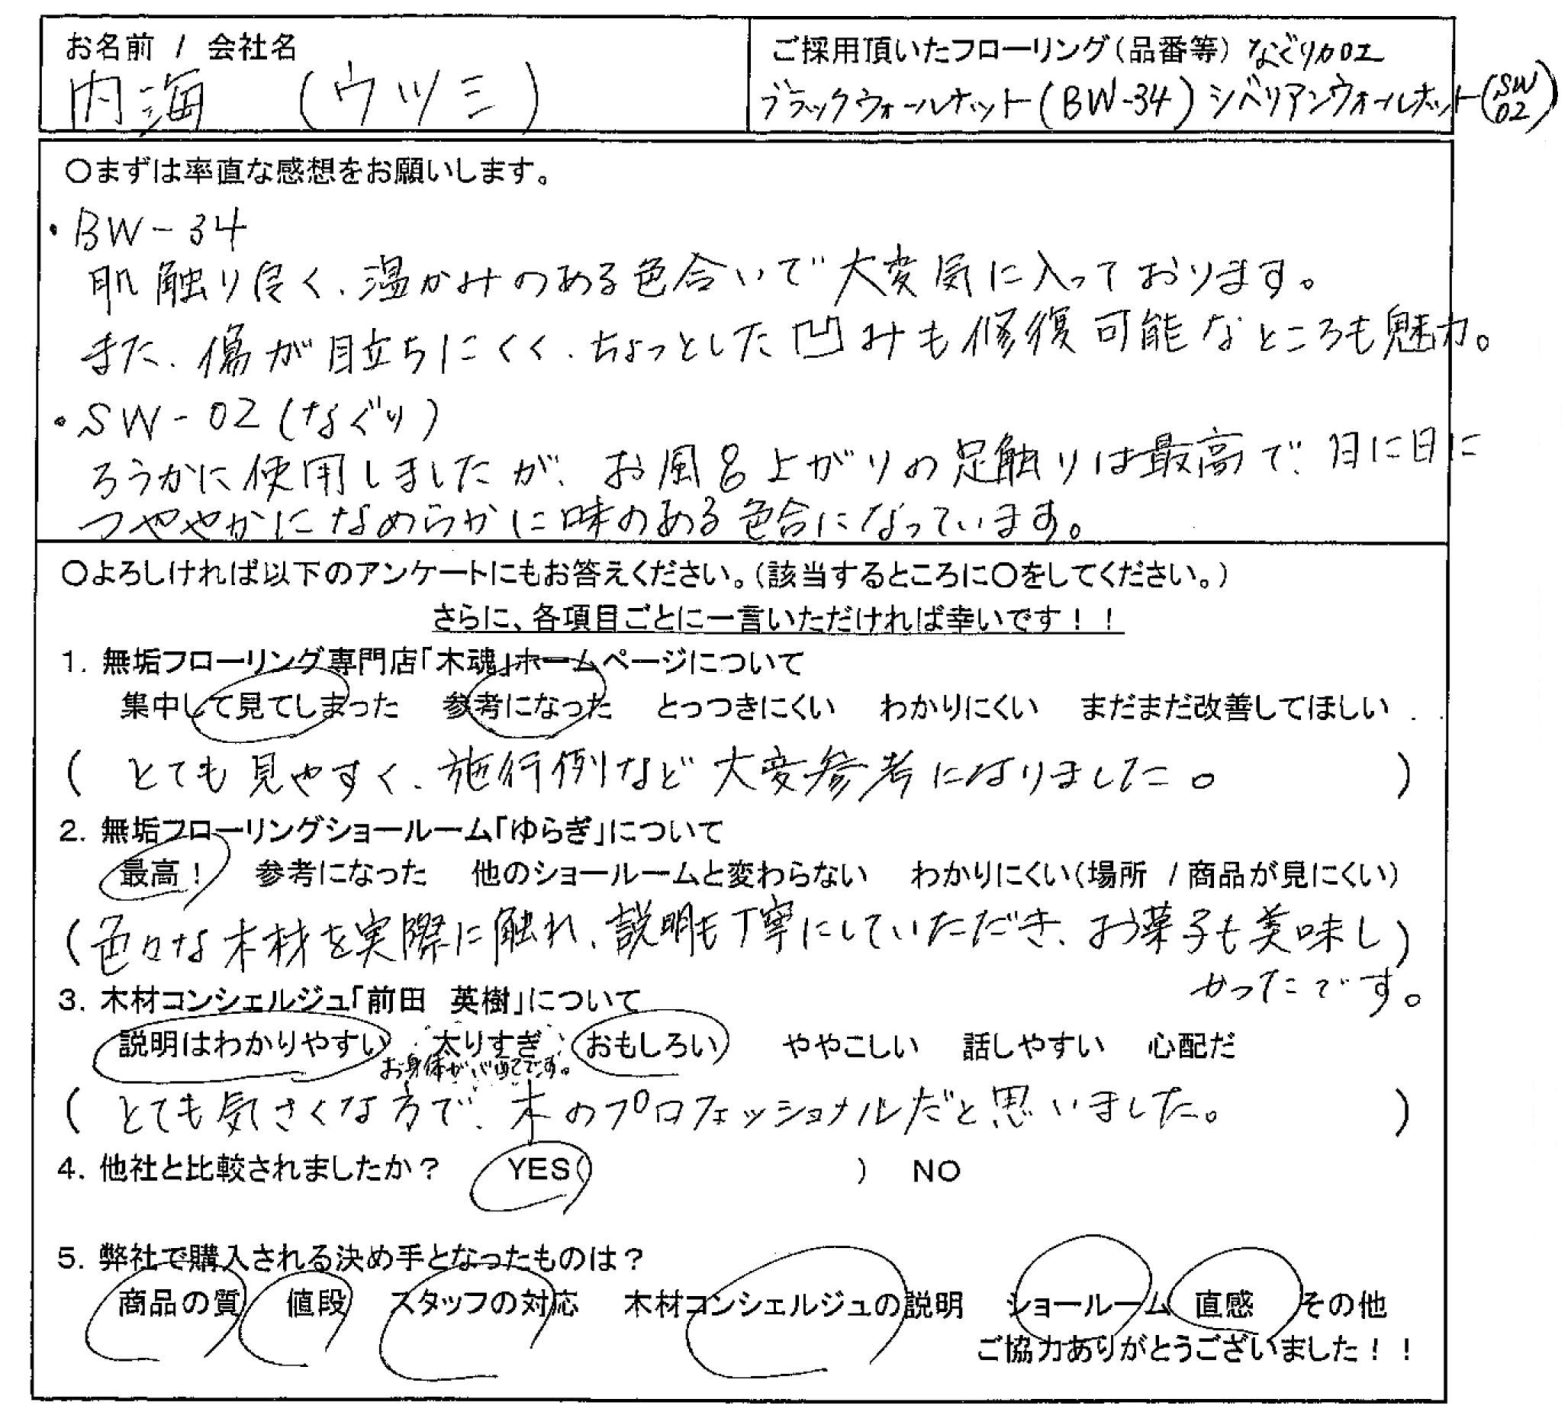 お名前 / 会社名
内海 (ウツミ)
ご採用頂いたフローリング(品番等) なぐり加工
ブラックウォールナット(BW-34) シベリアンウォールナット(SW 02)
○まずは率直な感想をお願いします。
・BW-34
肌触り良く、温かみのある色合いで大変気に入っております。
また、傷が目立ちにくく、ちょっとした凹みも修復可能なところも魅力。
・SW-02(なぐり)
ろうかに使用しましたが、お風呂上がりの足触りは最高で、日に日に
つややかになめらかに味のある色合になっています。
○よろしければ以下のアンケートにもお答えください。(該当するところに○をしてください。)
さらに、各項目ごとに一言いただければ幸いです!!
1. 無垢フローリング専門店「木魂」ホームページについて
集中して見てしまった 参考になった とっつきにくい わかりにくい まだまだ改善してほしい
( とても見やすく、施行例など大変参考になりました。 )
2. 無垢フローリングショールーム「ゆらぎ」について
最高! 参考になった 他のショールームと変わらない わかりにくい(場所 / 商品が見にくい)
(色々な木材を実際に触れ、説明も丁寧にしていただき、お菓子も美味し)
かったです。
3. 木材コンシェルジュ「前田 英樹」について
説明はわかりやすい 太りすぎ おもしろい ややこしい 話しやすい 心配だ
お身体が心配です。
( とても気さくな方で、木のプロフェッショナルだと思いました。 )
4. 他社と比較されましたか? YES( ) NO
5. 弊社で購入される決め手となったものは?
商品の質 値段 スタッフの対応 木材コンシェルジュの説明 ショールーム 直感 その他
ご協力ありがとうございました!!